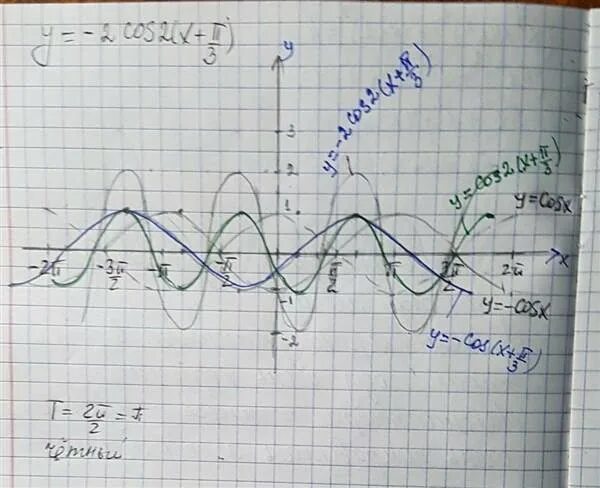 y = -2 cos2(x + π/3)
y
y=-2cos2(x+π/3)
y=cos2(x+π/3)
y=cosx
3
2
1
-2π
-3π/2
-π
-π/2
π/2
π
3π/2
2π
x
-1
-2
y=-cosx
y=-cos(x+π/3)
T = 2π/2 = π
чётный